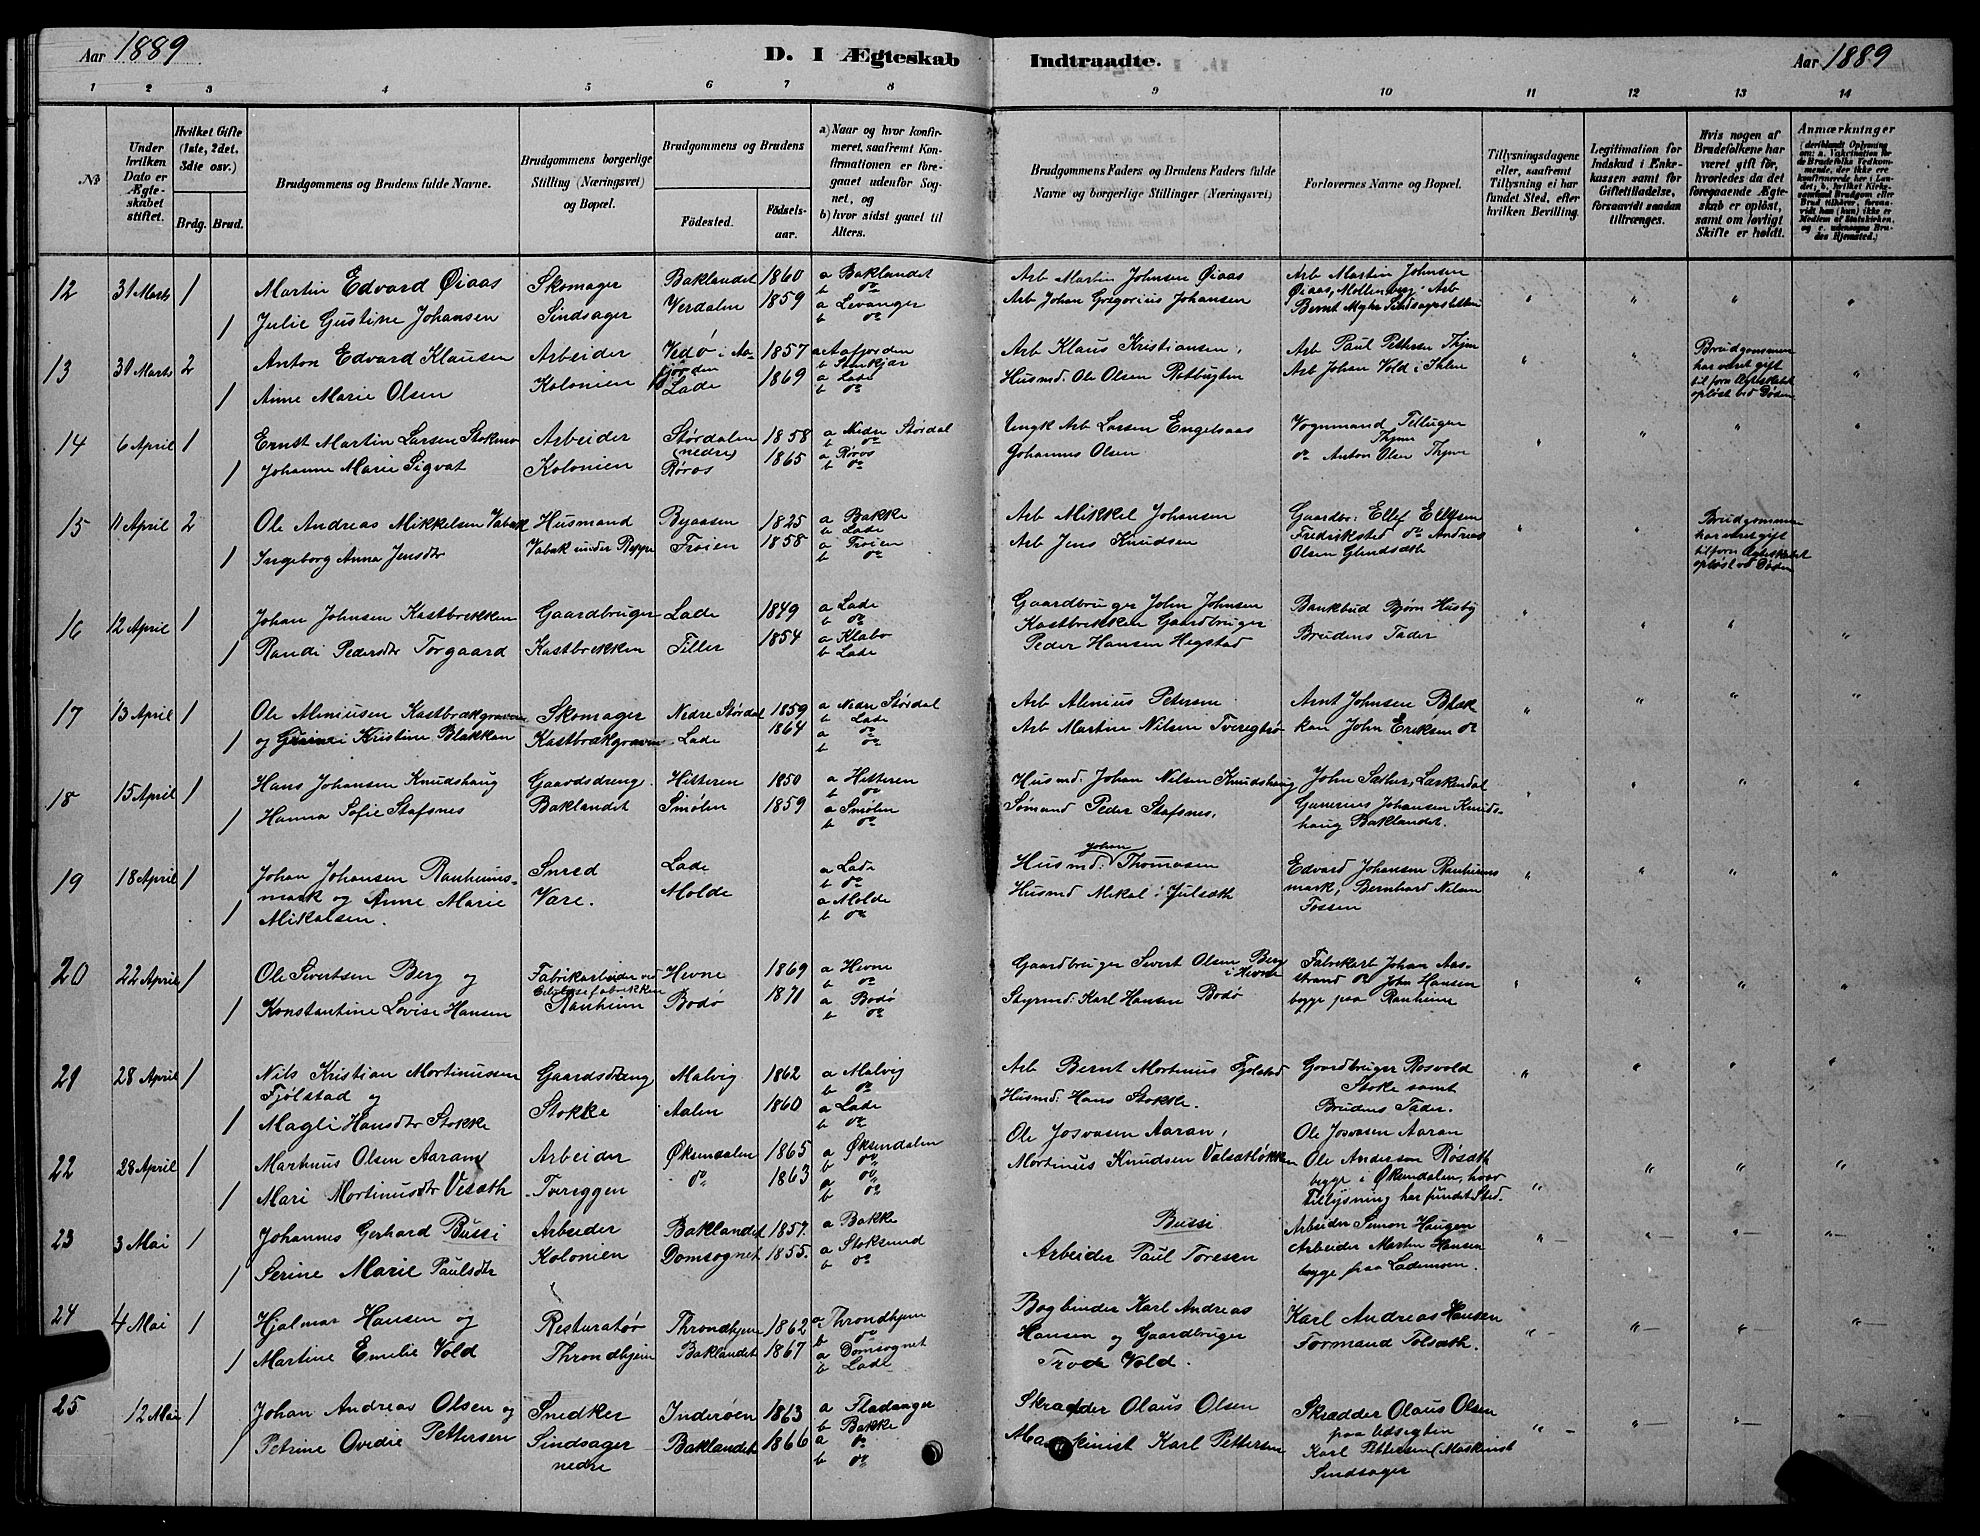 Aar 1889
D. I Ægteskab Indtraadte.
Aar 1889
1 2 3 4 5 6 7 8 9 10 11 12 13 14
№
Under hvilken Dato er Ægteskabet stiftet.
Hvilket Gifte (1ste, 2det, 3die osv.)
Brdg. Brud.
Brudgommens og Brudens fulde Navne.
Brudgommens borgerlige Stilling (Næringsvei) og Bopæl.
Brudgommens og Brudens
Födested. Födselsaar.
a) Naar og hvor konfirmeret, saafremt Konfirmationen er foregaaet udenfor Sognet, og
b) hvor sidst gaaet til Alters.
Brudgommens Faders og Brudens Faders fulde Navne og borgerlige Stillinger (Næringsvei)
Forlovernes Navne og Bopæl.
Tillysningsdagene eller, saafremt Tillysning ei har fundet Sted, efter hvilken Bevilling.
Legitimation for Indskud i Enkekassen samt for Giftetilladelse, forsaavidt saadan tiltrænges.
Hvis nogen af Brudefolkene har været gift för, hvorledes da det foregaaende Ægteskab er oplöst, samt om lovligt Skifte er holdt.
Anmærkninger
12 31 Marts 1 Martin Edvard Øiaas Skomager Baklandet 1860 a Baklandet Arb Martin Johnsen Øiaas Arb Martin Johnsen
b do Øiaas, Mollenberg. Arb
1 Julie Gustine Johansen Sindsager Verdalen 1859 a Levanger Arb Johan Gregorius Johansen Bernt
b do
13 31 Marts 2 Anton Edvard Klausen Arbeider 1857 a Aafjorden Arb Klaus Kristiansen Arb Paul Pettersen
b Stenkjær
1 Anne Marie Olsen Kolonien Lade 1869 a Lade Husmd. Ole Olsen Rotbugten Arb Johan Vold i Ihlen
b do
Brudgommen har været gift til forn Ægteskabet opløst ved Døden
14 6 April 1 Ernst Martin Larsen Arbeider Størdalen (nedre) 1858 a Nedre Størdal Arb Larsen Engelsaas Vognmand
b do
1 Johanne Marie Sigvat Kolonien Røros 1865 a Røros Johannes Olsen do Anton Olsen
b do
15 11 April 2 Ole Andreas Mikkelsen Husmand Byaasen 1825 a Bakke Arb Mikkel Johansen Gaardbr: Ellef Ellefsen
b Lade Fredriksted do Andreas
1 Ingeborg Anna Jensdtr under 1858 a b do Arb Jens Knudsen Olsen
Brudgommen har været gift tilforn Ægteskabet opløst ved Døden
16 12 April 1 Johan Johnsen Kastbrekken Gaardbruger Lade 1849 a Lade Gaardbruger John Johnsen Bankbud Bjørn Husby
b do Kastbrekken Gaardbruger
1 Randi Pedersdtr Torgaard Kastbrekken Tiller 1854 a Klæbo Peder Hansen Hegstad Brudens Fader
b Lade
17 13 April 1 Ole Aleniusen Kastbrækgraven Skomager Nedre Størdal 1859 a Nedre Størdal Arb Alenius Petersen Arnt Johnsen Blæk
b Lade
1 og Kristine Blækken Kastbrækgraven Lade 1864 a do Arb Martin Nilsen kan John Eriksen do
b do
18 15 April 1 Hans Johansen Knudshaug Gaardsdreng Hitteren 1850 a Hitteren Husmd. Johan Nilsen Knudshaug John Sæther, Lerkendal
b do
1 Hanna Sofie Stafsnes Baklandet Smølen 1859 a Smølen Sømand Peder Stafsnes. Gunerius Johansen Knudshaug Baklandet.
b do
19 18 April 1 Johan Johansen Ranheimsmark og Anne Marie Mikalsen. Smed Lade a Lade Husmd. Johan Thomasen Edvard Johansen Ranheims
b do
1 Være. Molde a Molde Husmd Mikal i Julsæth mark, Bernhard Nilsen Fossen
b do
20 22 April 1 Ole Sivertsen Berg og Fabrikarbeider ved Hevne 1869 a Hevne Gaardbruger Sivert Olsen Berg i Hevne Fabrikarb Johan Aas-
b do strand do John Hansen
1 Konstantine Lovise Hansen Ranheim Bodø 1871 a Bodø Styrmd. Karl Hansen Bodø begge paa Ranheim
b do
21 28 April 1 Nils Kristian Mortinussen Fjølstad og Gaardsdreng Malvig 1862 a Malvig Arb Bernt Mortinus Fjølstad Gaardbruger Rosvold
b do Stoke samt
1 Magli Hansdtr Stokke Stokke Aalen 1860 a Lade Husmd. Hans Stokke. Brudens Fader.
b do
22 28 April 1 Martinus Olsen Aaram Arbeider Øksendalen 1865 a Øksendalen Ole Josvasen Aaran, Ole Josvasen Aaran
b do Mortinus Knudsen Ole Anderson Røsæth
1 Mari Mortinusdtr Vesæth Tvereggen do 1863 a do begge i Økendalen, hvor
b do Tillysning har fundet Sted.
23 3 Mai 1 Johannes Gerhard Bussi Arbeider Baklandet 1857. a Bakke Bussi Arbeider Simon Haugen
1 Serine Marie Paulsdtr Kolonien Domsognet 1855. a Stoksund Arbeider Paul Toresen Arbeider Martin Hansen
b do begge paa Lademoen.
24 4 Mai 1 Hjalmar Hansen og Resturatør Throndhjem 1862 a Throndhjem Bogbinder Karl Andreas Karl Andreas Hansen
b do Hansen og Gaardbruger
1 Martine Emelie Vold Throndhjem Baklandet 1867 a Domsognet Vold. Formand Tolsæth.
b Lade
25 12 Mai 1 Johan Andreas Olsen og Snedker Inderøen 1863 a Fladanger Skrædder Olaus Olsen Skrædder Olaus Olsen
b Bakke paa Udsigten
1 Petrine Ovidie Pettersen Sindsager nedre Baklandet 1866 a do Maskinist Karl Pettersen Karl Pettersen (Maskinist
b do Sindsager